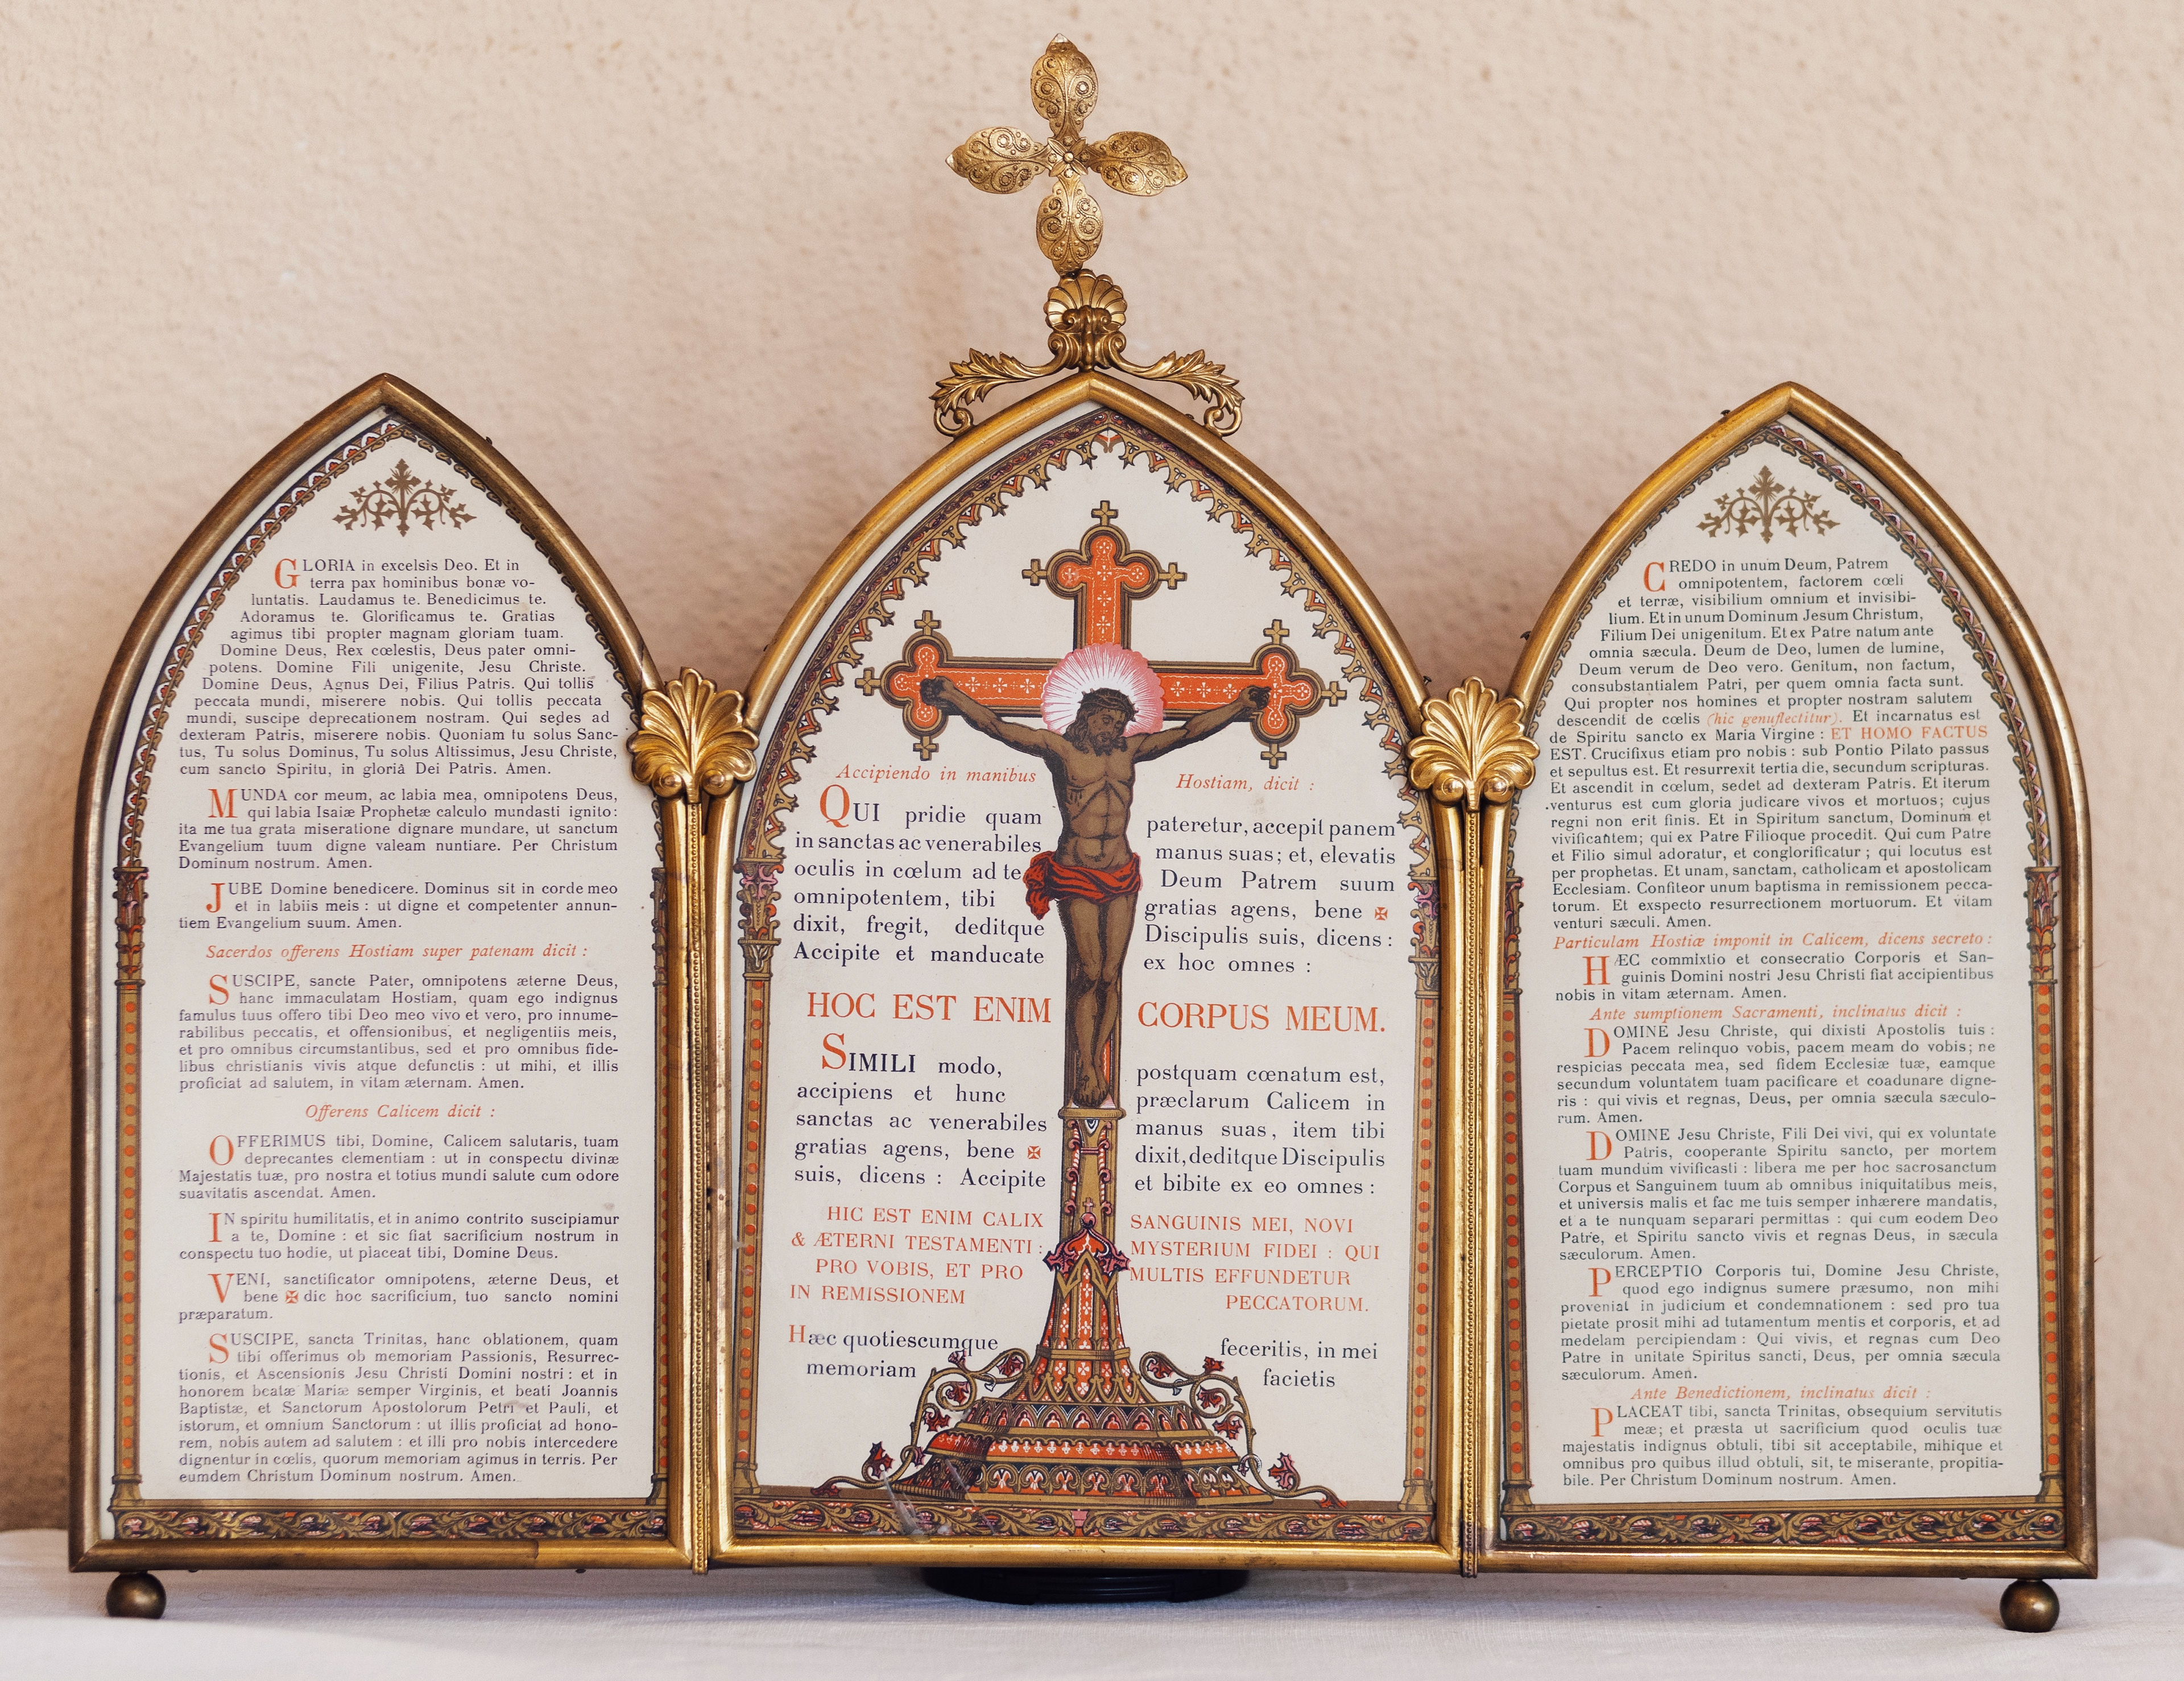 GLORIA in excelsis Deo. Et in
terra pax hominibus bonæ vo-
luntatis. Laudamus te. Benedicimus te.
Adoramus te. Glorificamus te. Gratias
agimus tibi propter magnam gloriam tuam.
Domine Deus, Rex cœlestis, Deus pater omni-
potens. Domine Fili unigenite, Jesu Christe.
Domine Deus, Agnus Dei, Filius Patris. Qui tollis
peccata mundi, miserere nobis. Qui tollis peccata
mundi, suscipe deprecationem nostram. Qui sedes ad
dexteram Patris, miserere nobis. Quoniam tu solus Sanc-
tus, Tu solus Dominus, Tu solus Altissimus, Jesu Christe,
cum sancto Spiritu, in gloriâ Dei Patris. Amen.
MUNDA cor meum, ac labia mea, omnipotens Deus,
qui labia Isaiæ Prophetæ calculo mundasti ignito:
ita me tua grata miseratione dignare mundare, ut sanctum
Evangelium tuum digne valeam nuntiare. Per Christum
Dominum nostrum. Amen.
JUBE Domine benedicere. Dominus sit in corde meo
et in labiis meis : ut digne et competenter annun-
tiem Evangelium suum. Amen.
Sacerdos offerens Hostiam super patenam dicit :
SUSCIPE, sancte Pater, omnipotens æterne Deus,
hanc immaculatam Hostiam, quam ego indignus
famulus tuus offero tibi Deo meo vivo et vero, pro innume-
rabilibus peccatis, et offensionibus, et negligentiis meis,
et pro omnibus circumstantibus, sed et pro omnibus fide-
libus christianis vivis atque defunctis : ut mihi, et illis
proficiat ad salutem, in vitam æternam. Amen.
Offerens Calicem dicit :
OFFERIMUS tibi, Domine, Calicem salutaris, tuam
deprecantes clementiam : ut in conspectu divinæ
Majestatis tuæ, pro nostra et totius mundi salute cum odore
suavitatis ascendat. Amen.
IN spiritu humilitatis, et in animo contrito suscipiamur
a te, Domine : et sic fiat sacrificium nostrum in
conspectu tuo hodie, ut placeat tibi, Domine Deus.
VENI, sanctificator omnipotens, æterne Deus, et
bene ✠ dic hoc sacrificium, tuo sancto nomini
præparatum.
SUSCIPE, sancta Trinitas, hanc oblationem, quam
tibi offerimus ob memoriam Passionis, Resurrec-
tionis, et Ascensionis Jesu Christi Domini nostri : et in
honorem beatæ Mariæ semper Virginis, et beati Joannis
Baptistæ, et Sanctorum Apostolorum Petri et Pauli, et
istorum, et omnium Sanctorum : ut illis proficiat ad hono-
rem, nobis autem ad salutem : et illi pro nobis intercedere
dignentur in cœlis, quorum memoriam agimus in terris. Per
eumdem Christum Dominum nostrum. Amen.
Accipiendo in manibus Hostiam, dicit :
QUI pridie quam pateretur, accepit panem
in sanctas ac venerabiles manus suas; et, elevatis
oculis in cœlum ad te Deum Patrem suum
omnipotentem, tibi gratias agens, bene ✠
dixit, fregit, deditque Discipulis suis, dicens :
Accipite et manducate ex hoc omnes :
HOC EST ENIM CORPUS MEUM.
SIMILI modo, postquam cœnatum est,
accipiens et hunc præclarum Calicem in
sanctas ac venerabiles manus suas, item tibi
gratias agens, bene ✠ dixit, deditque Discipulis
suis, dicens : Accipite et bibite ex eo omnes :
HIC EST ENIM CALIX SANGUINIS MEI, NOVI
& ÆTERNI TESTAMENTI : MYSTERIUM FIDEI : QUI
PRO VOBIS, ET PRO MULTIS EFFUNDETUR
IN REMISSIONEM PECCATORUM.
Hæc quotiescumque feceritis, in mei
memoriam facietis
CREDO in unum Deum, Patrem
omnipotentem, factorem cœli
et terræ, visibilium omnium et invisibi-
lium. Et in unum Dominum Jesum Christum,
Filium Dei unigenitum. Et ex Patre natum ante
omnia sæcula. Deum de Deo, lumen de lumine,
Deum verum de Deo vero. Genitum, non factum,
consubstantialem Patri, per quem omnia facta sunt.
Qui propter nos homines et propter nostram salutem
descendit de cœlis (hic genuflectitur). Et incarnatus est
de Spiritu sancto ex Maria Virgine : ET HOMO FACTUS
EST. Crucifixus etiam pro nobis : sub Pontio Pilato passus
et sepultus est. Et resurrexit tertia die, secundum scripturas.
Et ascendit in cœlum, sedet ad dexteram Patris. Et iterum
venturus est cum gloria judicare vivos et mortuos; cujus
regni non erit finis. Et in Spiritum sanctum, Dominum et
vivificantem; qui ex Patre Filioque procedit. Qui cum Patre
et Filio simul adoratur, et conglorificatur ; qui locutus est
per prophetas. Et unam, sanctam, catholicam et apostolicam
Ecclesiam. Confiteor unum baptisma in remissionem pecca-
torum. Et exspecto resurrectionem mortuorum. Et vitam
venturi sæculi. Amen.
Particulam Hostiæ imponit in Calicem, dicens secreto :
HÆC commixtio et consecratio Corporis et San-
guinis Domini nostri Jesu Christi fiat accipientibus
nobis in vitam æternam. Amen.
Ante sumptionem Sacramenti, inclinatus dicit :
DOMINE Jesu Christe, qui dixisti Apostolis tuis :
Pacem relinquo vobis, pacem meam do vobis; ne
respicias peccata mea, sed fidem Ecclesiæ tuæ, eamque
secundum voluntatem tuam pacificare et coadunare digne-
ris : qui vivis et regnas, Deus, per omnia sæcula sæculo-
rum. Amen.
DOMINE Jesu Christe, Fili Dei vivi, qui ex voluntate
Patris, cooperante Spiritu sancto, per mortem
tuam mundum vivificasti : libera me per hoc sacrosanctum
Corpus et Sanguinem tuum ab omnibus iniquitatibus meis,
et universis malis et fac me tuis semper inhærere mandatis,
et a te nunquam separari permittas : qui cum eodem Deo
Patre, et Spiritu sancto vivis et regnas Deus, in sæcula
sæculorum. Amen.
PERCEPTIO Corporis tui, Domine Jesu Christe,
quod ego indignus sumere præsumo, non mihi
proveniat in judicium et condemnationem : sed pro tua
pietate prosit mihi ad tutamentum mentis et corporis, et ad
medelam percipiendam : Qui vivis, et regnas cum Deo
Patre in unitate Spiritus sancti, Deus, per omnia sæcula
sæculorum. Amen.
Ante Benedictionem, inclinatus dicit :
PLACEAT tibi, sancta Trinitas, obsequium servitutis
meæ; et præsta ut sacrificium quod oculis tuæ
majestatis indignus obtuli, tibi sit acceptabile, mihique et
omnibus pro quibus illud obtuli, sit, te miserante, propitia-
bile. Per Christum Dominum nostrum. Amen.